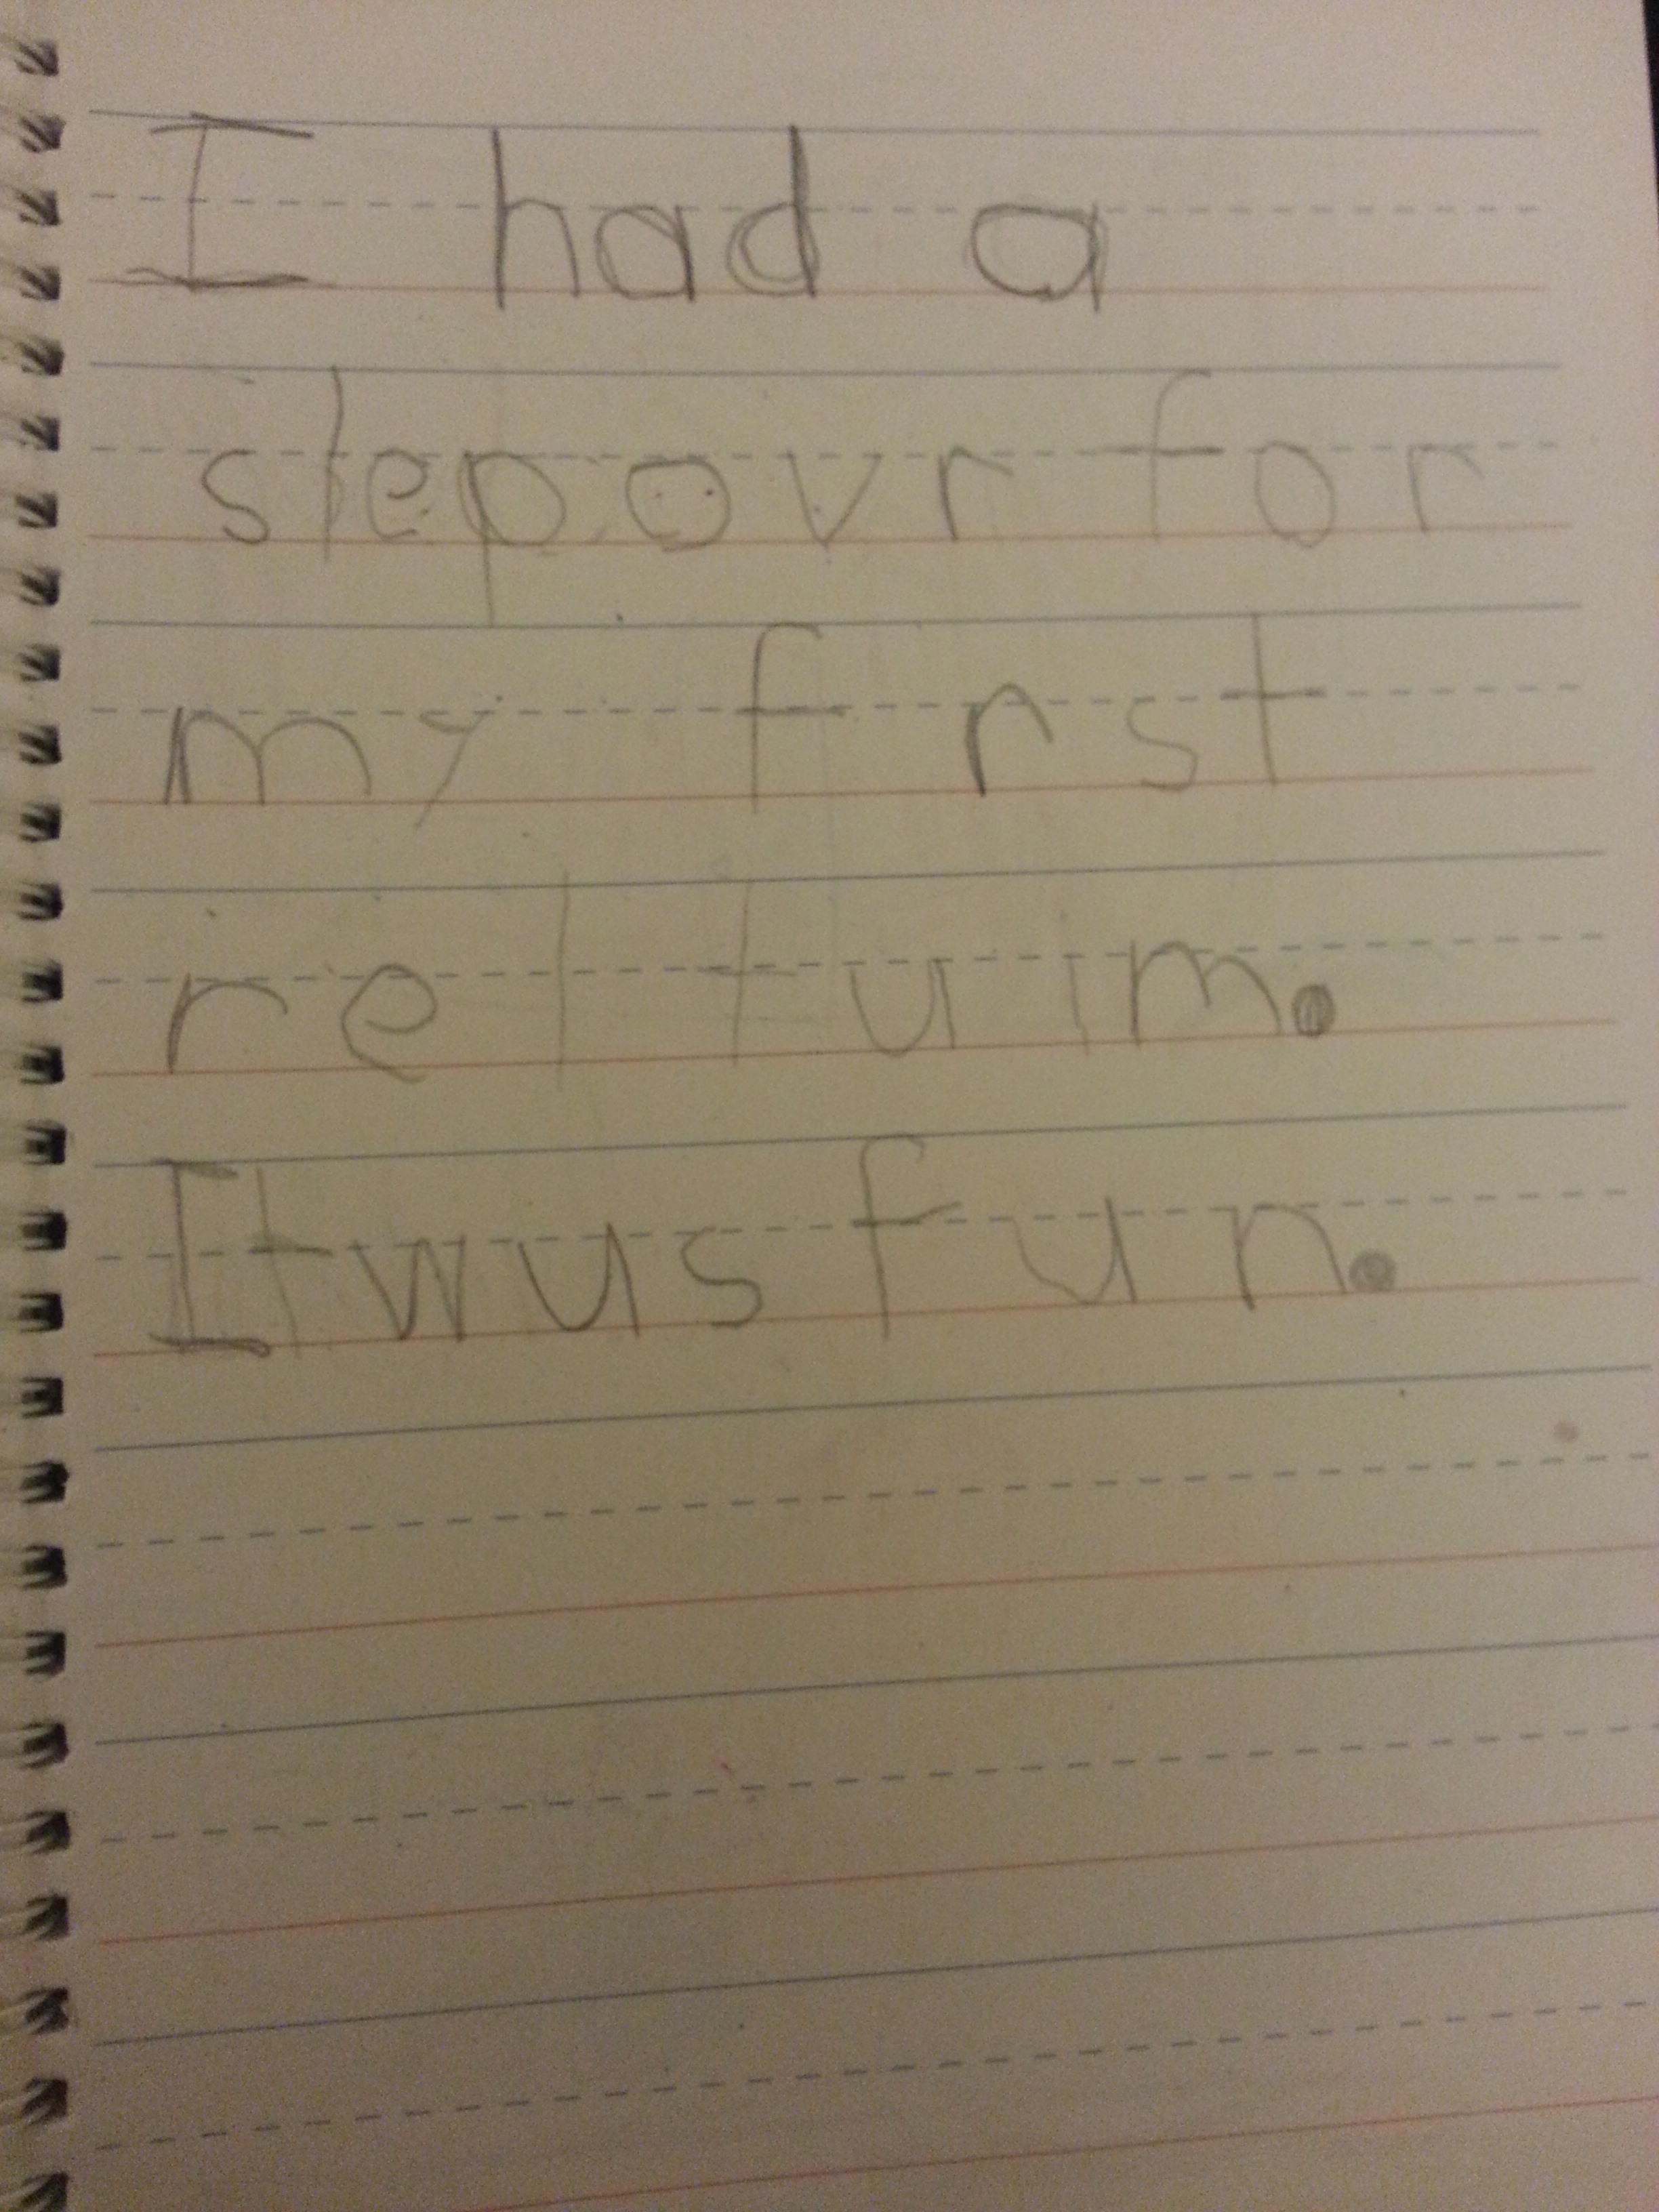 I had a
slepovr for
my frst
rel tuim.
It wus fun.